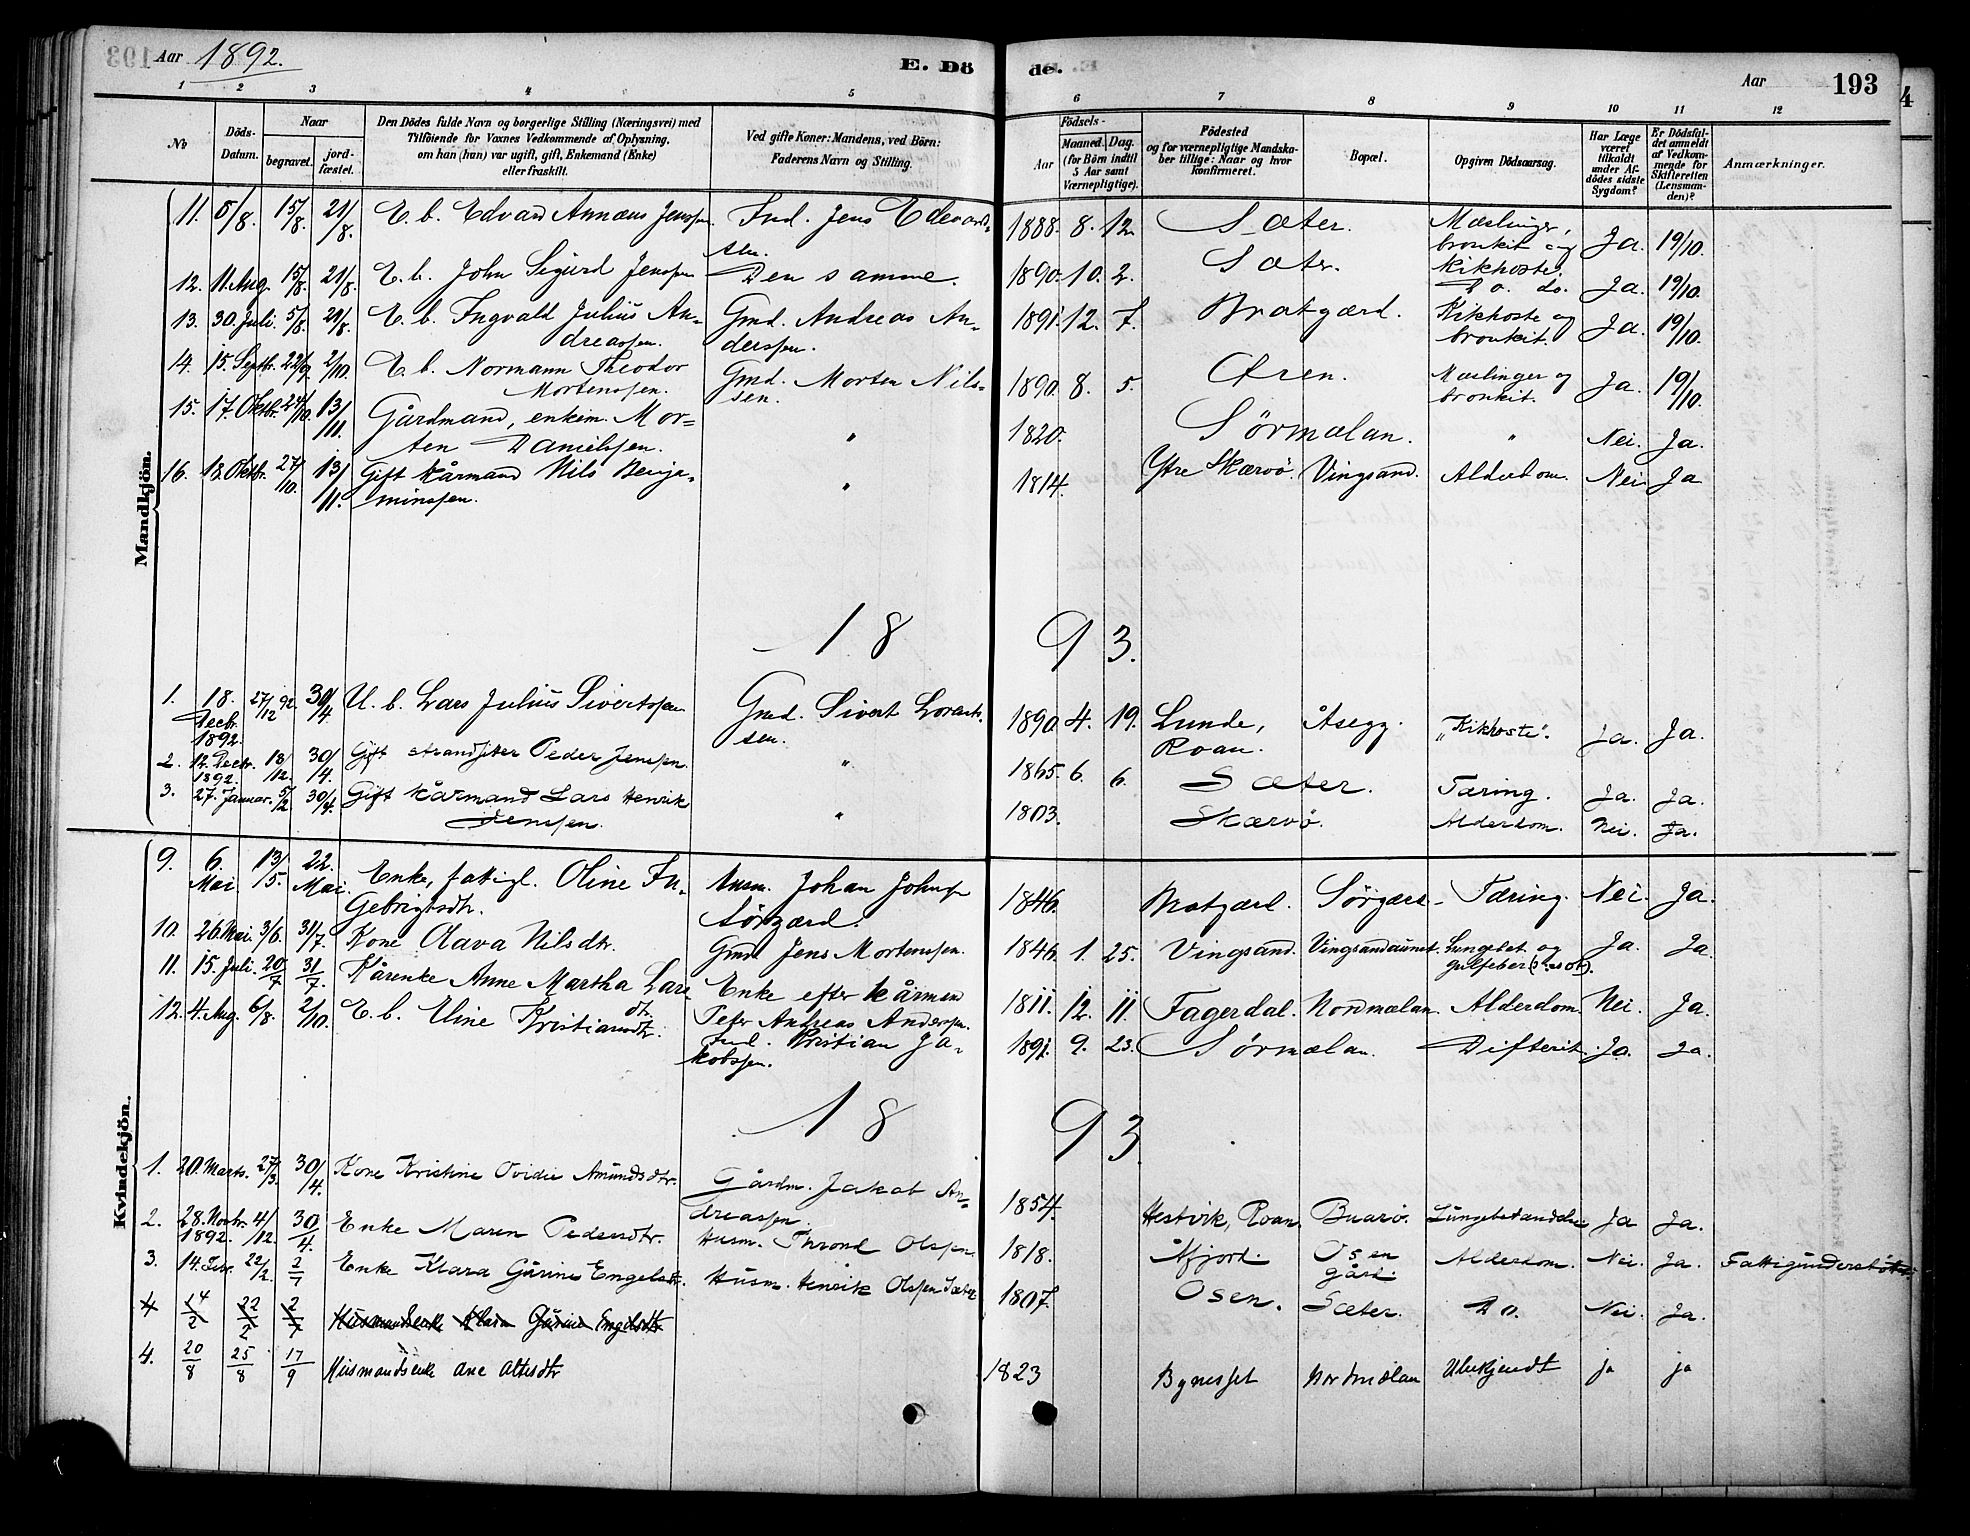 Aar 1892.
E. Dö
de.
Aar
193
1 2 3 4 5 6 7 8 9 10 11 12
No
Döds-Datum.
Naar
begravet.
jord-fæstet.
Den Dödes fulde Navn og borgerlige Stilling (Næringsvei) med
Tilföiende for Voxnes Vedkommende af Oplysning,
om han (hun) var ugift, gift, Enkemand (Enke)
eller fraskilt.
Ved gifte Koner: Mandens, ved Börn:
Faderens Navn og Stilling.
Födsels-
Aar
Maaned. Dag.
(for Börn indtil
5 Aar samt
Værnepligtige).
Födested
og for værnepligtige Mandska-
ber tillige: Naar og hvor
konfirmeret.
Bopæl.
Opgiven Dödsaarsag.
Har Læge
været
tilkaldt
under Af-
dödes sidste
Sygdom?
Er Dödsfal-
det anmeldt
af Vedkom-
mende for
Skifteretten
(Lensman-
den)?
Anmærkninger.
Mandkjön.
11. 5/8. 15/8. 21/8. E. b. Edvard Annæus Jenssen Ind. Jens Edevard-
sen. 1888. 8. 12. Sæter. Mæslinger,
bronkit og
kikhoste. Ja. 19/10.
12. 11. Aug. 15/8. 21/8. E. b. John Sigurd Jenssen Den samme. 1890. 10. 2. Sæter. Do. do. Ja. 19/10.
13. 30. Juli. 5/8. 21/8. E. b. Ingvald Julius An-
dreassen. Gmd. Andreas An-
derssen. 1891. 12. 7. Bratgærd. Kikhoste og
bronkit. Ja. 19/10.
14. 15. Septbr. 22/9. 2/10. E. b. Normann Theodor
Mortenssen. Gmd. Morten Nils-
sen. 1890. 8. 5. Mæslinger og
bronkit. Ja. 19/10.
15. 17. Oktbr. 24/10. 13/11. Gårdmand, enkem. Mor-
ten Danielssen. " 1820. Sörmælan. " Nei. Ja.
16. 18. Oktbr. 27/10. 13/11. Gift kårmand Nils Benja-
minssen. " 1814. Ytre Skærvö. Vingsand. Alderdom. Nei. Ja
18 93.
1. 18. Decbr. 1892. 27/12 92. 30/4 U. b. Lars Julius Sivertssen Gmd. Sivert Lorents-
sen. 1890. 4. 19. Lunde,
Roan. Åsegg. "Kikhoste". Ja. Ja.
2. 12. Decbr. 1892. 18/12. 30/4. Gift strandsitter Peder Jenssen. " 1865. 6. 6. Sæter. Tæring. Ja. Ja.
3. 27. Januar. 5/2 30/4. Gift kårmand Lars Henrik
Jenssen. " 1803. Skærvö. Alderdom. Nei. Ja.
Kvindekjön.
9. 6. Mai. 13/5. 22. Mai. Enke, fattigl. Oline In-
gebrigtsdtr. Husm. Johan Johnsen
Sörgærd. 1846. Bratgærd. Sörgærd. Tæring. Nei. Ja.
10. 26. Mai. 3/6. 31/7. Kone Olava Nilsdtr. Gmd. Jens Mortenssen. 1846. 1. 25. Vingsand. Vingsandaunet. Lungebet. og
gulfeber Ja. Ja
11. 15. Juli. 20/7 31/7. Kårenke Anne Martha Lars-
dtr. Enke efter kårmand
Peter Andreas Anderssen. 1811. 12. 11. Fagerdal. Nordmælan. Alderdom. Nei. Ja.
12. 4. Aug. 6/8. 2/10. E. b. Eline Kristiansdtr. Ind. Kristian Ja-
kobssen. 1891. 9. 23. Sörmælan. Difterit. Ja. Ja.
18 93.
1. 20. Marts. 27/3. 30/4. Kone Kristine Ovidie Amundsdtr. Gårdm. Jakob An-
dreassen. 1854. Hestvik, Roan. Buarö. Lungebetændelse Ja Ja.
2. 28. Novbr. 1892. 4/12. 30/4. Enke Maren Pedersdtr. Husm. Thrond Olssen. 1818. Åfjord. Osen
gård. Alderdom. Nei. Ja. Fattigunderstöttet
3. 14. Febr. 22/2. 2/7 Enke Klara Gurine Engelsdtr. Husm. Henrik Olssen Sæter 1807. Osen. Sæter. Do. Nei. Ja.
4 14/2 22/2 2/7 Husmandsenke Klara Gurine Engelsdtr
4. 20/8 25/8 17/9 Husmandsenke Ane Altesdtr 1823 Bynesset Nordmælan Ubekjendt ja ja